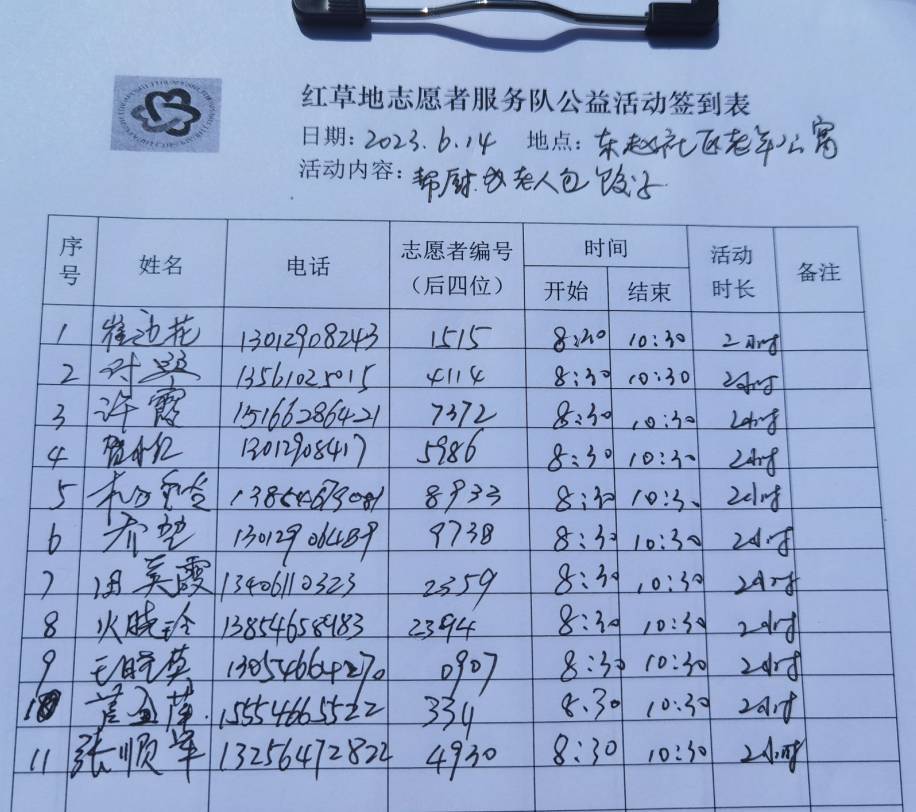 红草地志愿者服务队公益活动签到表
日期:2023.6.14 地点:东赵社区老年公寓
活动内容:帮厨 老人包饺子
序号 姓名 电话 志愿者编号(后四位) 时间 开始 结束 活动时长 备注
1 崔迎花 13012908243 1515 8:30 10:30 2小时
2 13561025015 4114 8:30 10:30 2小时
3 许霞 15166286421 7372 8:30 10:30 2小时
4 13012908417 5986 8:30 10:30 2小时
5 8933 8:30 10:30 2小时
6 乔堃 9738 8:30 10:30 2小时
7 田英霞 13406110323 2359 8:30 10:30 2小时
8 晓玲 13854658983 2394 8:30 10:30 2小时
9 毛晓英 13054664270 0907 8:30 10:30 2小时
10 15554665522 334 8:30 10:30 2小时
11 张顺军 13256472822 4930 8:30 10:30 2小时